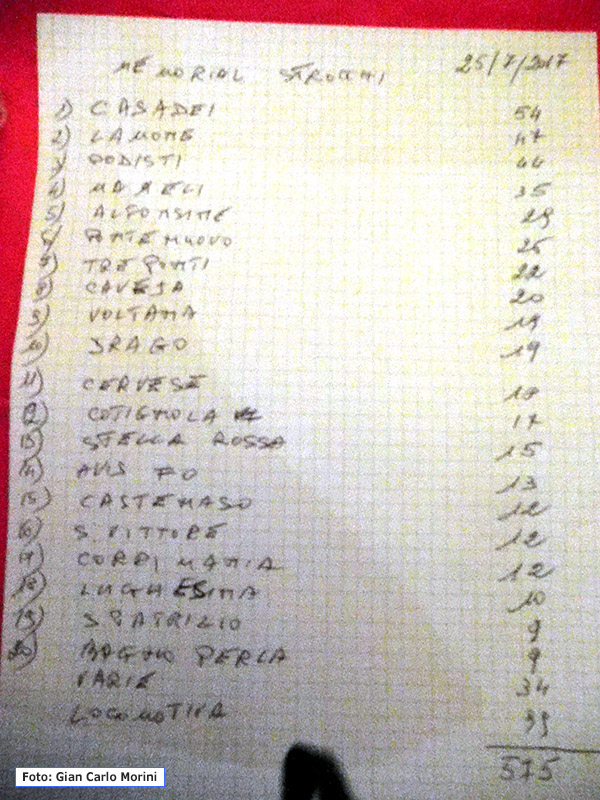 MEMORIAL STROCCHI 25/7/2017
1) CASADEI 54
2) LAMONE 47
3) PODISTI 44
4) MAMELI 35
5) ALFONSINE 29
6) PONTE NUOVO 25
7) TRE PONTI 22
8) CAVEJA 20
9) VOLTANA 19
10) DRAGO 19
11) CERVESE 18
12) COTIGNOLA 17
13) STELLA ROSSA 15
14) AVIS FO 13
15) CASTENASO 12
16) S. VITTORE 12
17) CORRI MANIA 12
18) LUGHESINA 10
19) S PATRIZIO 9
20) BAGNO PERLA 9
VARIE 34
LOCOMOTIVA 99
575
Foto: Gian Carlo Morini